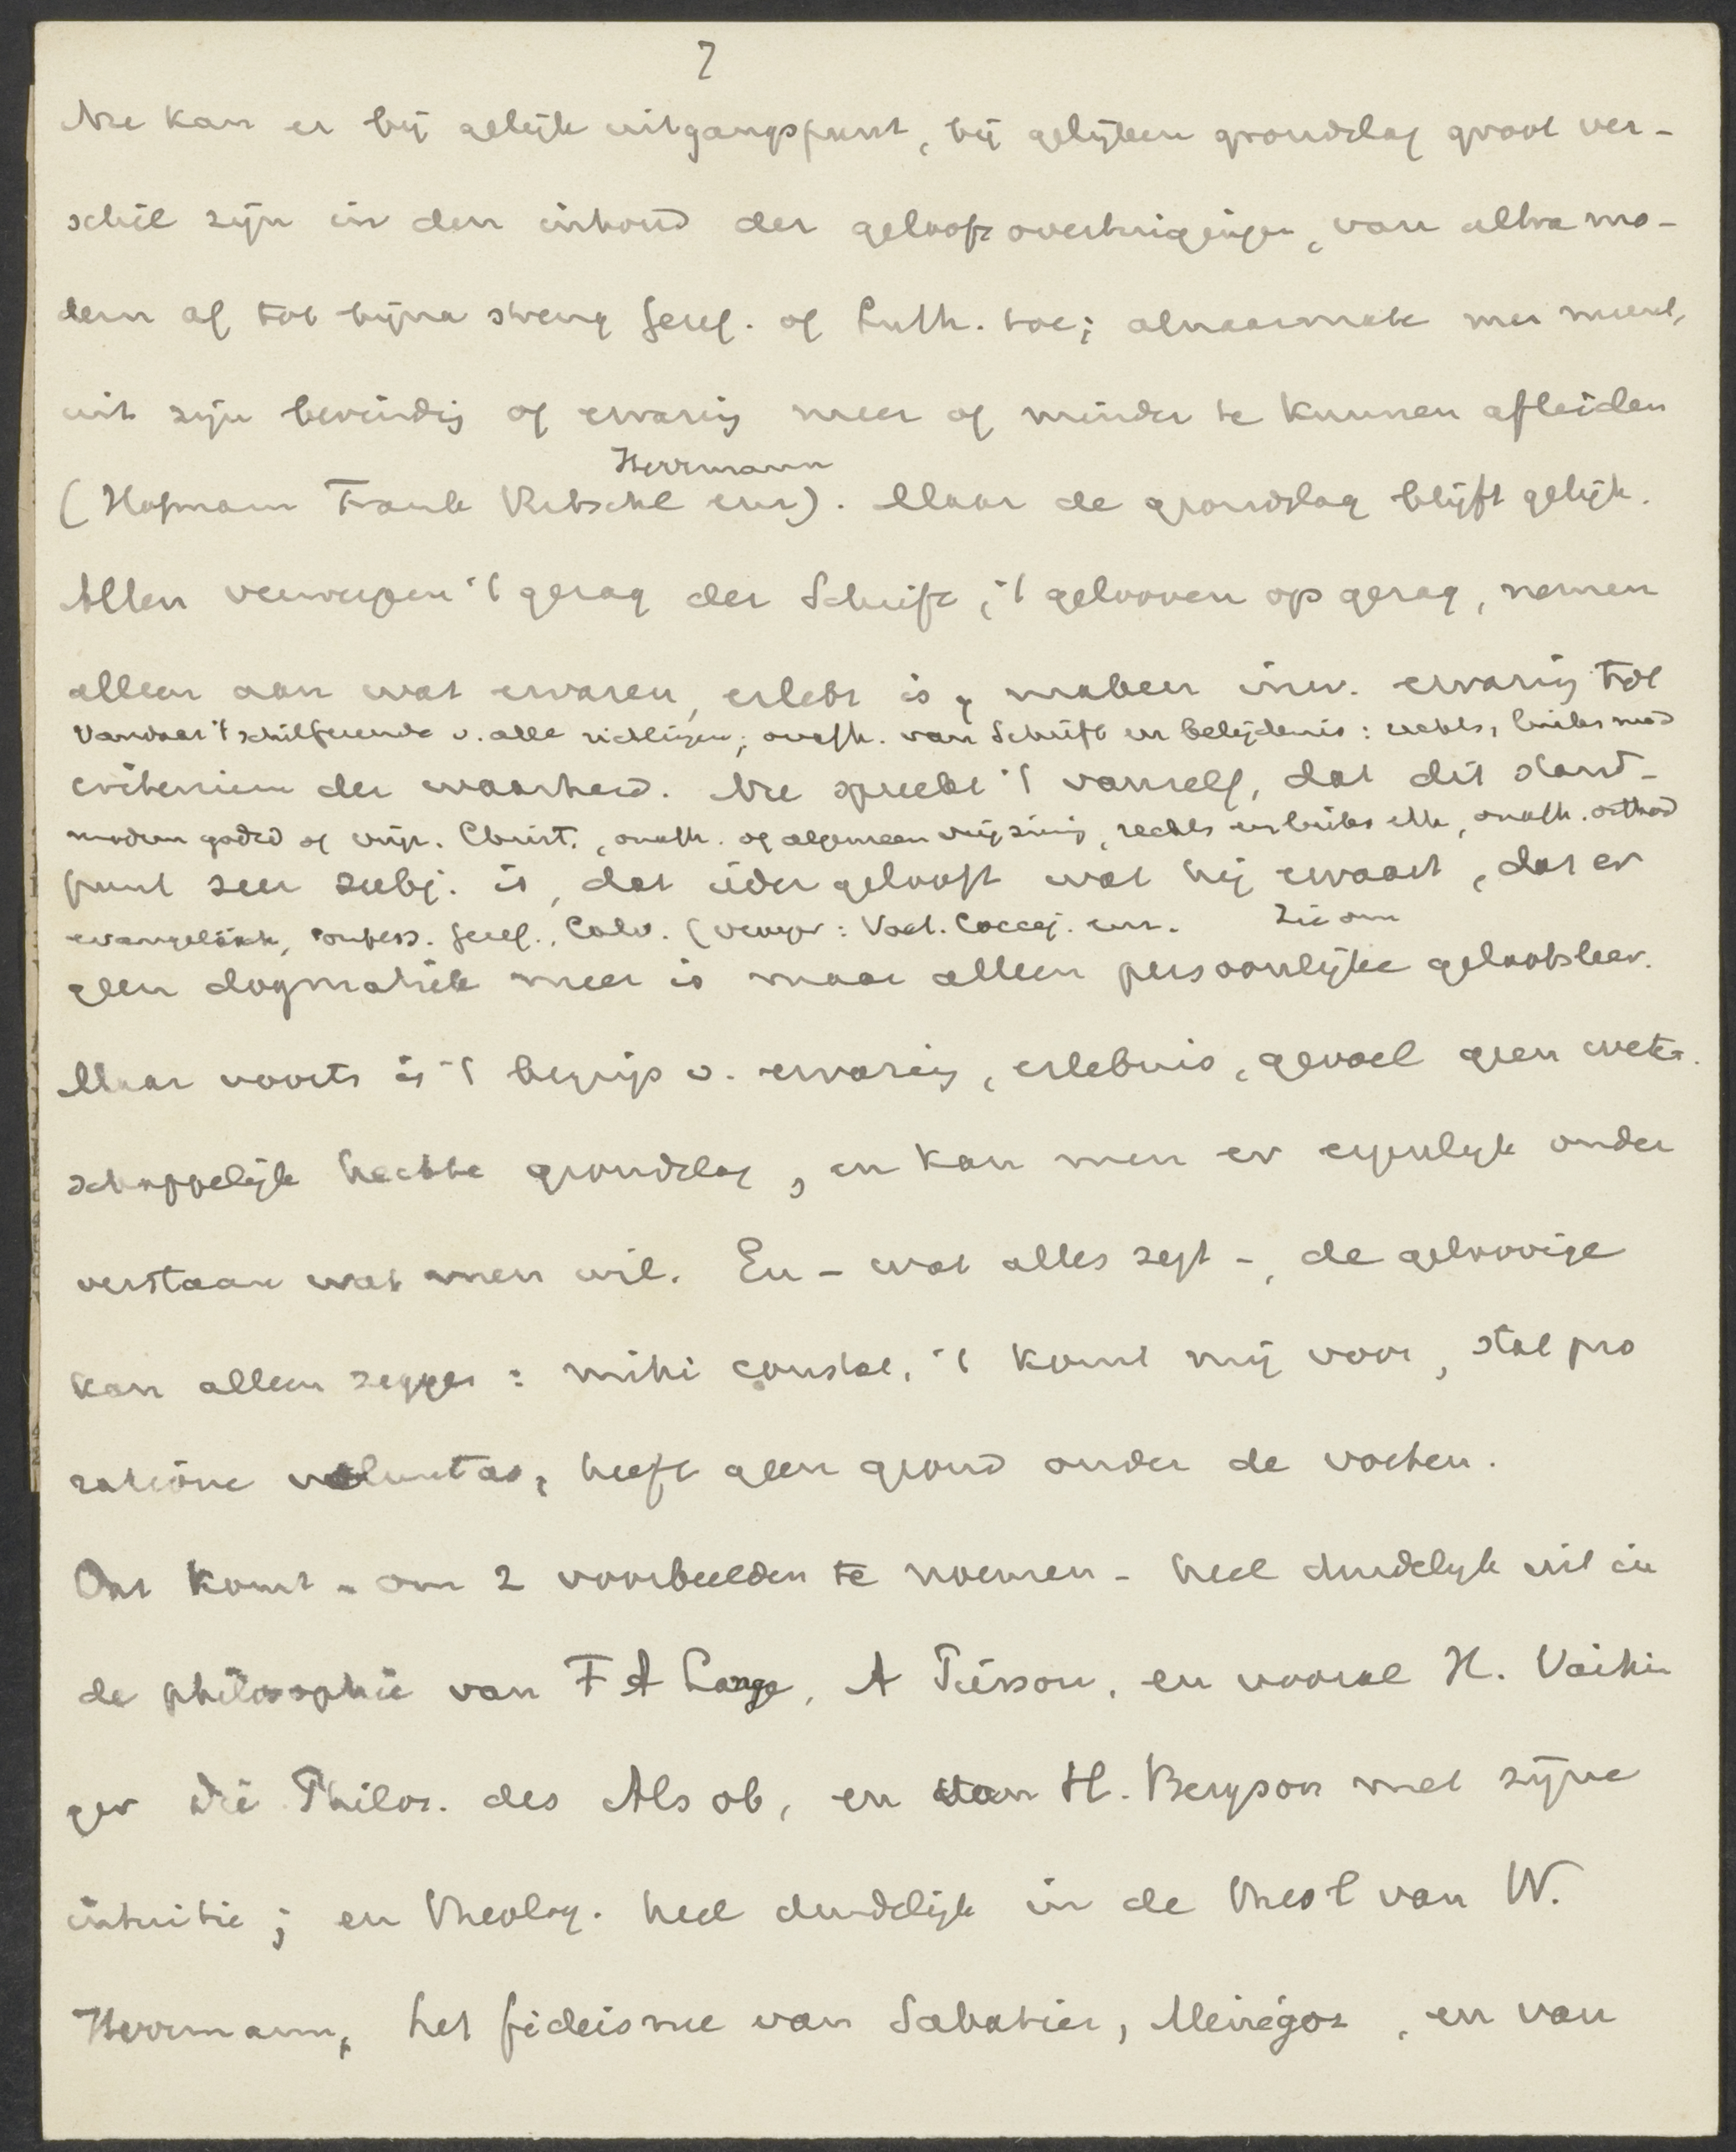 7
Nu kan er bij gelijk uitgangspunt, bij gelijken grondslag groot ver-
schil zijn in den inhoud der geloofsovertuigingen, van ultra mo-
dern af tot bijna streng Geref. of Luth. toe; alnaarmate men meent,
uit zijn bevinding of ervaring meer of minder te kunnen afleiden
Herrmann
(Hofmann Frank Ritschl enz). Maar de grondslag blijft gelijk.
Allen verwerpen 't gezag der Schrift, 't gelooven op gezag, nemen
alleen aan wat ervaren, erlebt is, maken inw. ervaring tot
Vandaar 't v. alle richtingen; onafh. van Schrift en belijdenis: rechts, links mod
criterium der waarheid. Nu spreekt 't vanzelf, dat dit stand-
modern godsd of vrijz. Christ., onafh. of algemeen vrijzinnig, rechts en links eth, onafh. orthod
punt zeer subj. is, dat ieder gelooft wat hij ervaart, dat er
evangelisch, confess. Geref., Calv. (vroeger: Voet. Coccej. enz. Zie om
geen dogmatiek meer is maar alleen persoonlijke geloofsleer.
Maar voorts is 't begrip v. ervaring, erlebnis, gevoel geen weten
schappelijk hechte grondslag, en kan men er eigenlijk onder
verstaan wat men wil. En - wat alles zegt -, de geloovige
kan alleen zeggen: mihi constat, 't komt mij voor, stat pro
ratione voluntas, heeft geen grond onder de voeten.
Dat komt - om 2 voorbeelden te noemen - heel duidelijk uit in
de philosophie van F A Lange, A Pierson, en vooral H. Vaihin
ger Die Philos. des Als ob, en van H. Bergson met zijne
intuitie; en theolog. heel duidelijk in de theol van W.
Herrmann, het fideisme van Sabatier, Ménégoz, en van